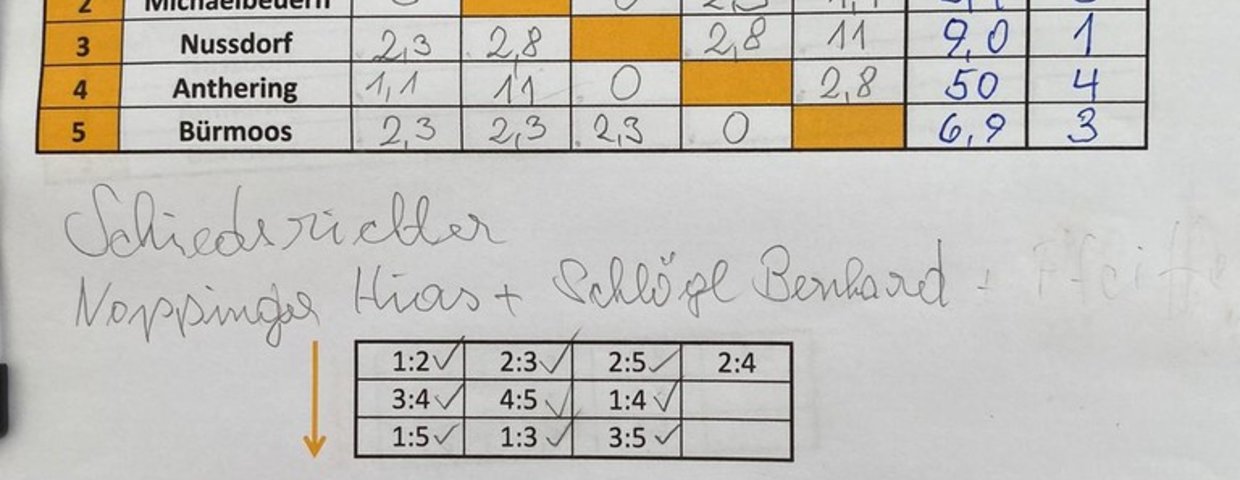 2 Michaelbeuern
3 Nussdorf 2,3 2,8 2,8 11 9,0 1
4 Anthering 1,1 11 0 2,8 50 4
5 Bürmoos 2,3 2,3 2,3 0 6,9 3
Schiedsrichter
Noppinger Hias + Schlögl Bernhard +
1:2✓ 2:3✓ 2:5✓ 2:4
3:4✓ 4:5✓ 1:4✓
1:5✓ 1:3✓ 3:5✓